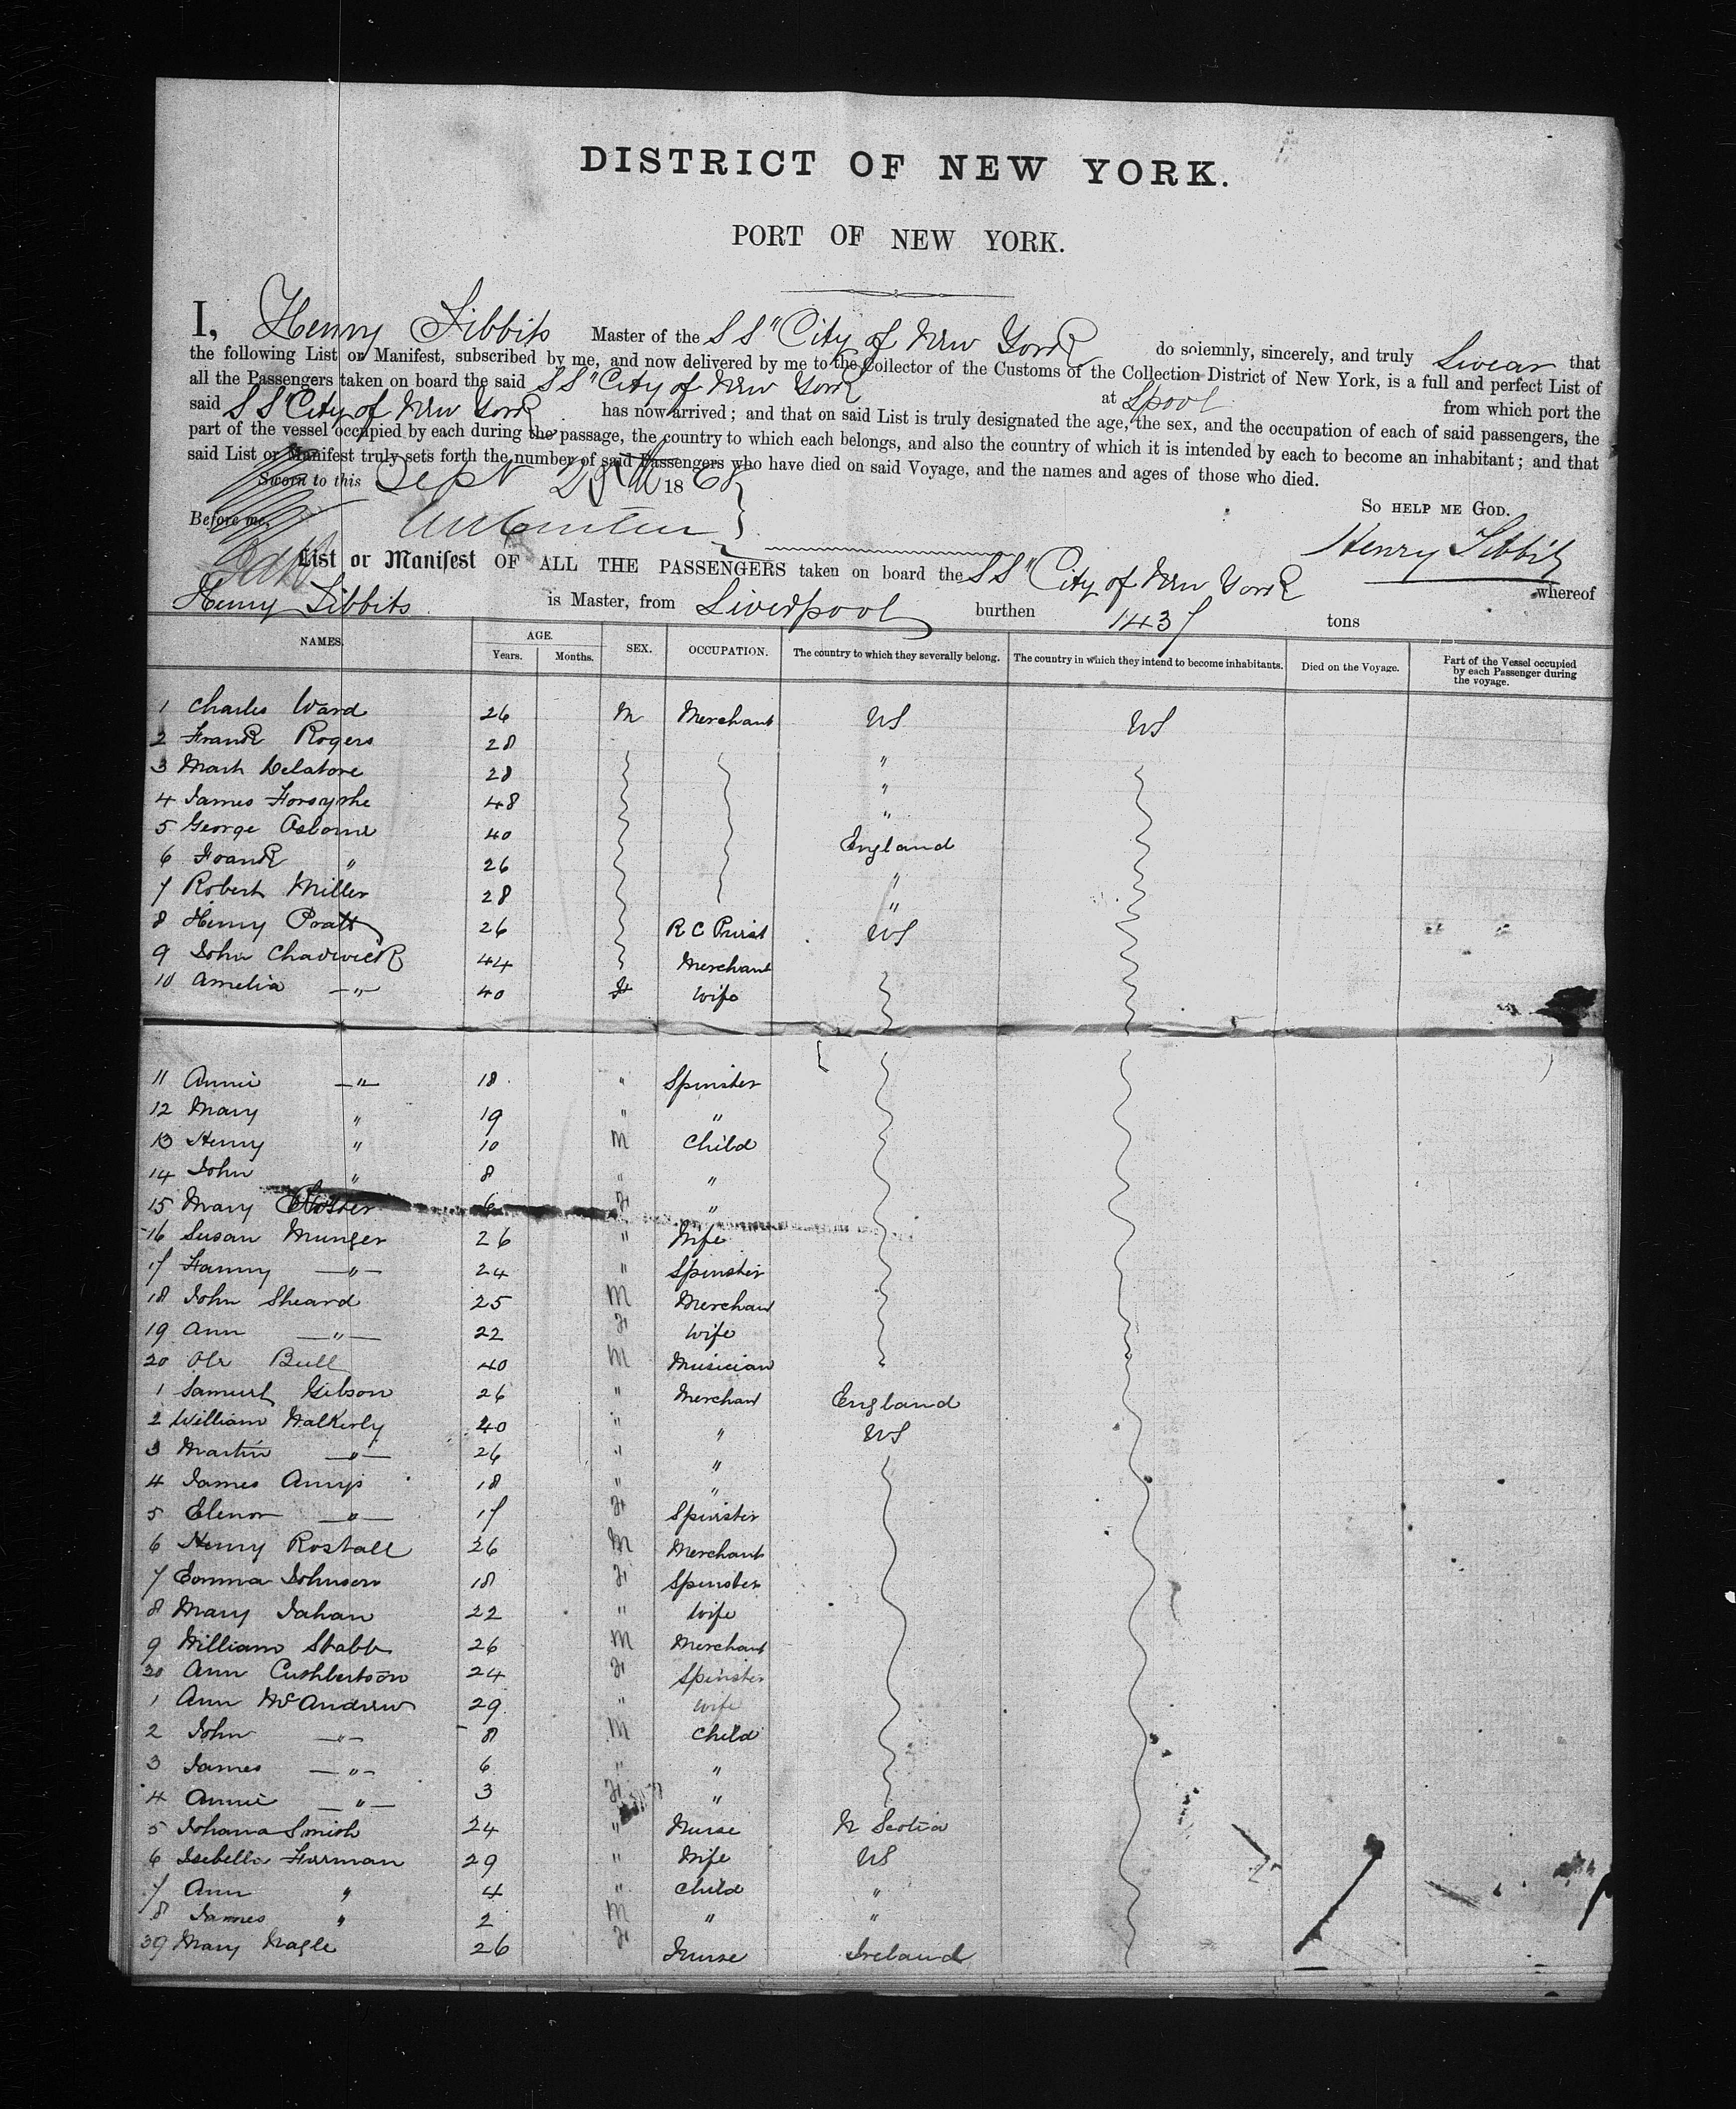 DISTRICT OF NEW YORK.
PORT OF NEW YORK.
I, Henry Tibbits Master of the SS "City of New York do solemnly, sincerely, and truly Swear that
the following List or Manifest, subscribed by me, and now delivered by me to the Collector of the Customs of the Collection District of New York, is a full and perfect List of
all the Passengers taken on board the said SS "City of New York at Lpool from which port the
said SS "City of New York has now arrived; and that on said List is truly designated the age, the sex, and the occupation of each of said passengers, the
part of the vessel occupied by each during the passage, the country to which each belongs, and also the country of which it is intended by each to become an inhabitant; and that
said List or Manifest truly sets forth the number of said Passengers who have died on said Voyage, and the names and ages of those who died.
Sworn to this Sept 1868
So HELP ME GOD.
Before me,
Henry Tibbits
List or Manifest OF ALL THE PASSENGERS taken on board the SS "City of New York whereof
Henry Tibbits is Master, from Liverpool burthen 1437 tons
NAMES. AGE. Years. Months. SEX. OCCUPATION. The country to which they severally belong. The country in which they intend to become inhabitants. Died on the Voyage. Part of the Vessel occupied by each Passenger during the voyage.
1 Charles Ward 26 M Merchant US US
2 Frank Rogers 28
3 Mark Delatore 28 "
4 James Forsythe 48 "
5 George Osborne 40 "
6 Frank " 26 England
7 Robert Miller 28 "
8 Henry Pratt 26 R C Priest US
9 John Chadwick 44 Merchant
10 Amelia " 40 F Wife
11 Annie " 18 " Spinster
12 Mary " 19 " "
13 Henry " 10 M Child
14 John " 8 " "
15 Mary 6 F "
16 Susan Munger 26 " Wife
17 Fanny " 24 " Spinster
18 John Sheard 25 M Merchant
19 Ann " 22 F Wife
20 Ole Bull 40 M Musician
1 Samuel Gibson 26 " Merchant England
2 William Walkerly 40 " " US
3 Martin " 26 " "
4 James 18 " "
5 Elenor " 17 F Spinster
6 Henry Rostall 26 M Merchant
7 Emma Johnson 18 F Spinster
8 Mary Jahan 22 " Wife
9 William Stabb 26 M Merchant
30 Ann Cuthbertson 24 F Spinster
1 Ann McAndrew 29 " Wife
2 John " 8 M Child
3 James " 6 " "
4 Annie " 3 F "
5 Johana Smith 24 " Nurse N Scotia
6 Isebella Furman 29 " Wife US
7 Ann " 4 " Child "
8 James " 2 M " "
39 Mary Nagle 26 F Nurse Ireland